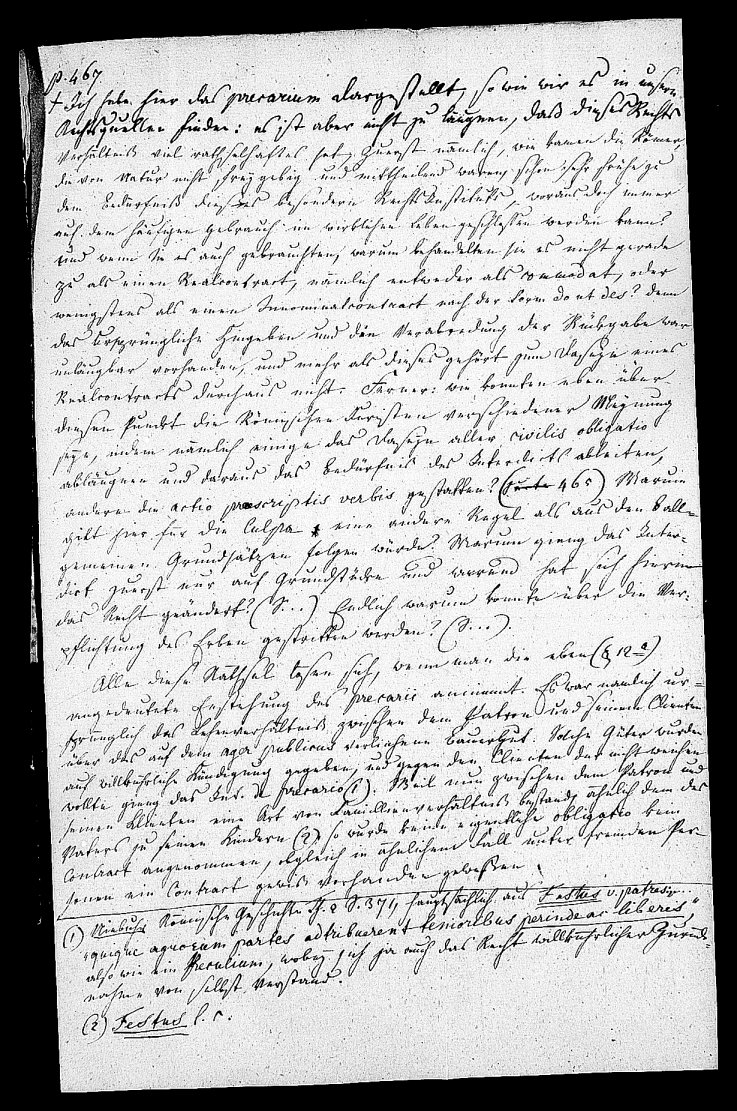 p. 467
+ Ich habe hier das precarium dargestellt, so wie wir es in unsern
Rechtsquellen finden: es ist aber nicht zu läugnen, daß dieses Rechts
Verhältniß viel räthselhaftes hat. Zuerst nämlich, wie kamen die Römer,
die von Natur nicht freygebig und mittheilend waren, schon sehr frühe zu
dem Bedürfniß dieses besondern Rechts Instituts, woraus doch immer
auf den häufigen Gebrauch im wirklichen Leben geschlossen werden kann?
Und wenn sie es auch gebrauchten, warum behandelten sie es nicht gerade
zu als einen Realcontract, nämlich entweder als commodat, oder
wenigstens als einen Innominatcontract nach der Form do ut des? denn
das Ursprüngliche Hingeben und die Verabredung der Rückgabe war
unläugbar vorhanden, und mehr als dieses gehört zum Daseyn eines
Realcontracts durchaus nicht. Ferner: wie konnten eben über
diesen Punckt die Römischen Juristen verschiedener Meynung
seyn, indem nämlich einige das Daseyn aller civilis obligatio
abläugnen und daraus das Bedürfniß des Interdicts ableiten,
andere die actio praescriptis verbis gestatten? (465) Warum
gilt hier für die Culpa eine andere Regel als aus den all-
gemeinen Grundsätzen folgen würde? Warum gieng das Inter-
dict zuerst nur auf Grundstücke und warum hat sich hierin
das Recht geändert? (S...) Endlich warum konnte über die Ver-
pflichtung des Erben gestritten werden? (S...).
Alle diese Räthsel lösen sich, wenn man die oben (§ 12 a)
angedeutete Entstehung des precarii annimmt. Es war nämlich ur-
sprünglich das Lehenverhältniß zwischen dem Patron und seinem Clienten
über das auf dem ager publicus verliehene Bauergut. Solche Güter wurden
auf willkührliche Kündigung gegeben, und gegen den Clienten der nicht weichen
wollte gieng das Int. de precario (1). Weil nun zwischen dem Patron und
seinem Klienten eine Art von Familienverhältniß bestand, ähnlich dem des
Vaters zu seinen Kindern (2) so wurde keine eigentliche obligatio kein
Contract angenommen, obgleich in ähnlichem Fall unter fremden Per-
sonen ein Contract gewiß vorhanden gewesen.
(1) Niebuhr Römische Geschichte Th. 2 S. 371, hauptsächlich aus Festus v. patres
"quique agrorum partes adtribuerent tenioribus perinde ac liberis"
also wie ein Peculium, wobey sich ja auch das Recht willkührlicher Zurück-
nahme von selbst verstand.
(2) Festus l. c.